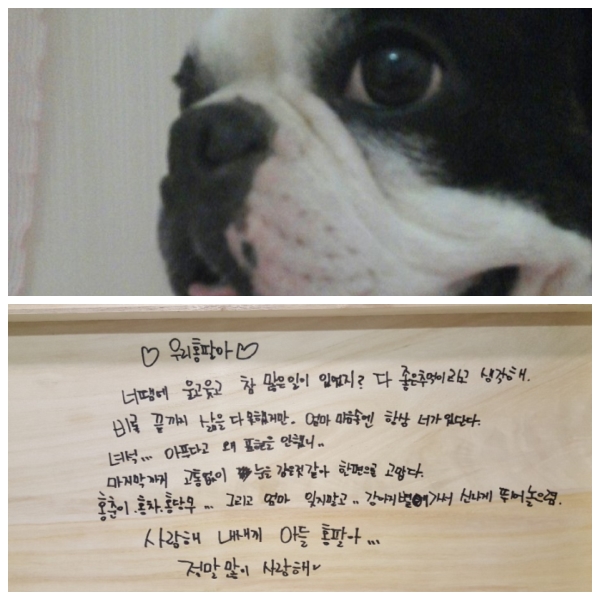 ♡ 우리홍팔아 ♡
너땜에 울고웃고 참 많은일이 있었지? 다 좋은추억이라고 생각해.
비록 끝까지 삶을 다 못했지만. 엄마 마음속엔 항상 너가 있단다.
녀석... 아프다고 왜 표현을 안했니..
마지막까지 고통없이 눈을 감은것 같아 한편으로 고맙다.
홍춘이.홍차.홍당무 ... 그리고 엄마 잊지말고.. 강아지별에가서 신나게 뛰어놀으렴.
사랑해 내새끼 아들 홍팔아 ...
정말 많이 사랑해